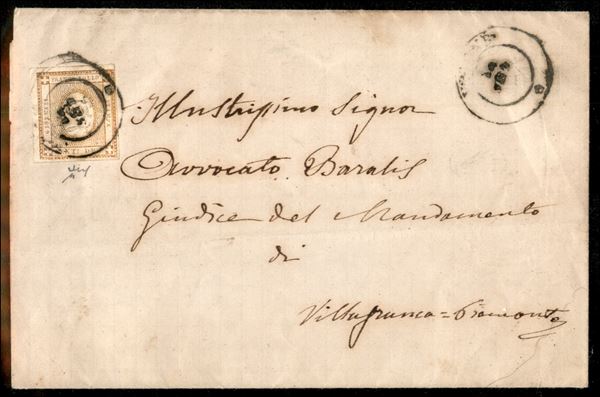 Illustrissimo Signor
Avvocato Baralis
Giudice del Mandamento
di
Villafranca = Piemonte